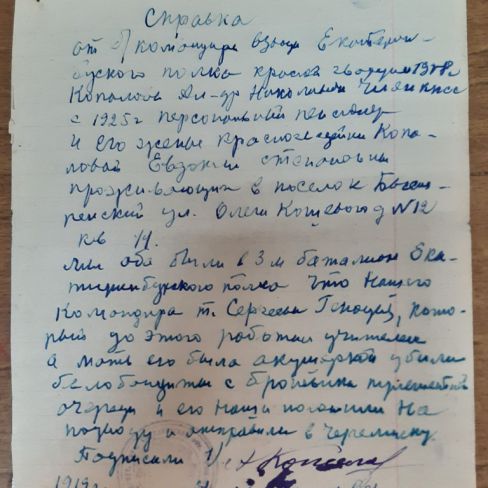 Справка
от б/ командира взвода Екатерин-
бугского полка красой гвардии 1918г
Копалова Ал-др Николаевич Член КПСС
с 1925г персональный пенсионер
и его жены красногвардейки Копа-
ловой Евдокии Степановны
проживающих в поселок
ул. Олега Кошевого д N12
кв 14.
Мы оба были в 3м баталион Ека-
теринбугского полка что Нашего
Командира т. Сергеева Генадия, кото-
рый до этого работал учителем
а мать его была акушеркой убили
белобандиты с броневика пулеметной
очереди и его наши положили на
подводу и отправили в
Подписали 1/
1919г